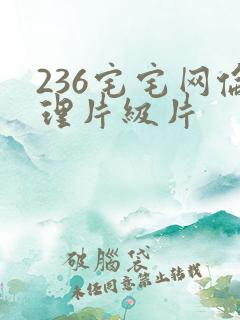 236宅宅网伦
理片级片
破腦袋
未经同意禁止转载